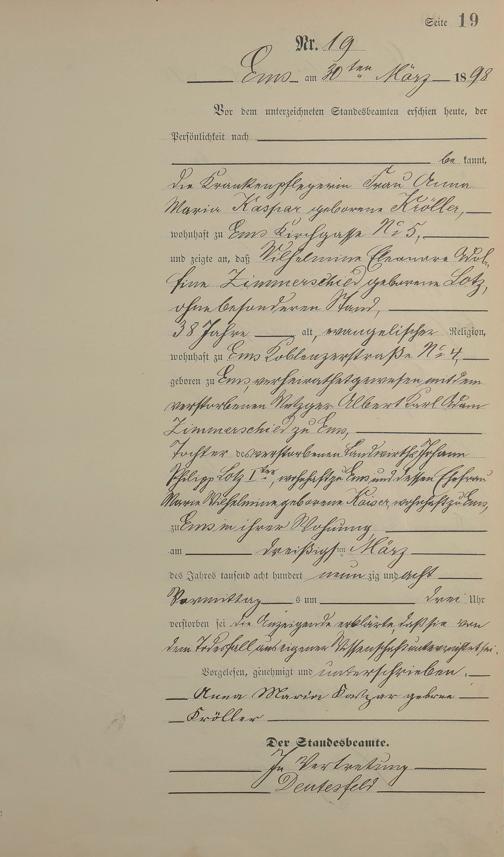 Seite 19
Nr. 19
Ems am 30ten März 1898
Vor dem unterzeichneten Standesbeamten erschien heute, der
Persönlichkeit nach
be kannt,
die Krankenpflegerin Frau Anna
Maria Kaspar geborene Kröller,
wohnhaft zu Ems Kirchgasse No 5,
und zeigte an, daß Wilhelmine Eleonore Adol,
fine Zimmerschied geborene Lotz,
ohne besonderen Stand,
38 Jahre alt, evangelischer Religion,
wohnhaft zu Ems Koblenzerstraße No 4,
geboren zu Ems, verheirathet gewesen mit dem
verstorbenen Metzger Albert Karl Adam
Zimmerschied zu Ems,
Tochter des verstorbenen Landwirths Johann
Philipp Lotz Iter, wohnhaft zu Ems und dessen Ehefrau
Marie Wilhelmine geborene Kaiser, wohnhaft zu Ems,
zu Ems in ihrer Wohnung
am dreißigsten März
des Jahres tausend acht hundert neun zig und acht
Vormittags um drei Uhr
verstorben sei. Die Anzeigende erklärte, daß sie von
dem Todesfall aus eigener Wissenschaft unterrichtet sei.
Vorgelesen, genehmigt und unterschrieben.
Anna Maria Kaspar geborne
Kröller
Der Standesbeamte.
In Vertretung
Deutesfeld